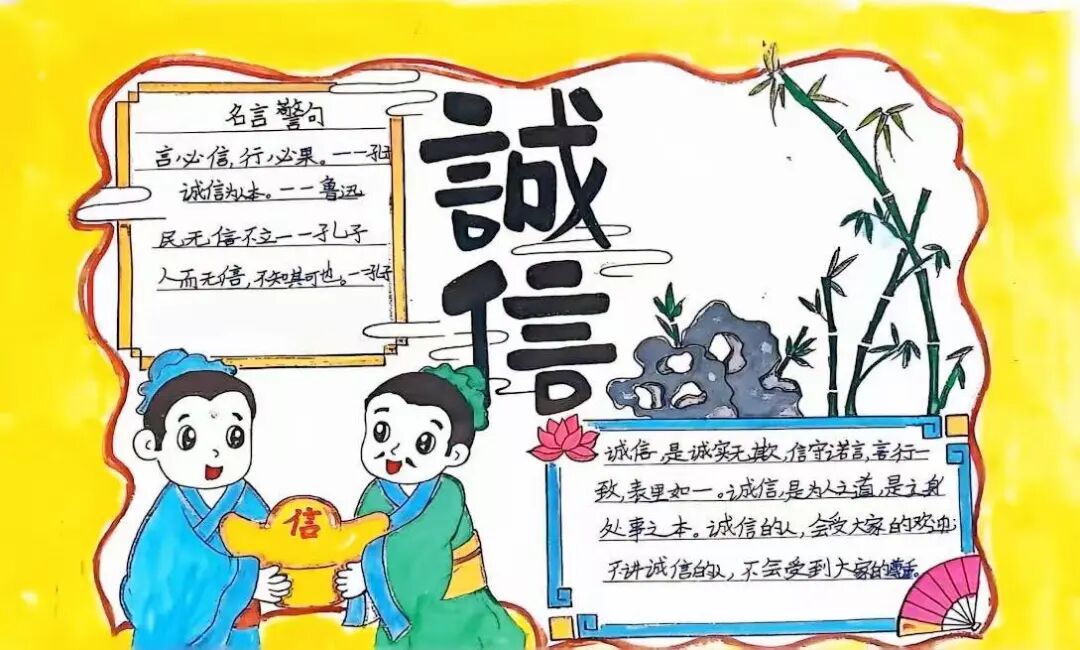 名言警句
言必信,行必果。——孔子
诚信为人本。——鲁迅
民无信不立——孔子
人而无信,不知其可也。—孔子
誠
信
信
诚信,是诚实无欺,信守诺言,言行一
致,表里如一。诚信,是为人之道,是立身
处事之本。诚信的人,会受大家的欢迎;
不讲诚信的人,不会受到大家的尊重。